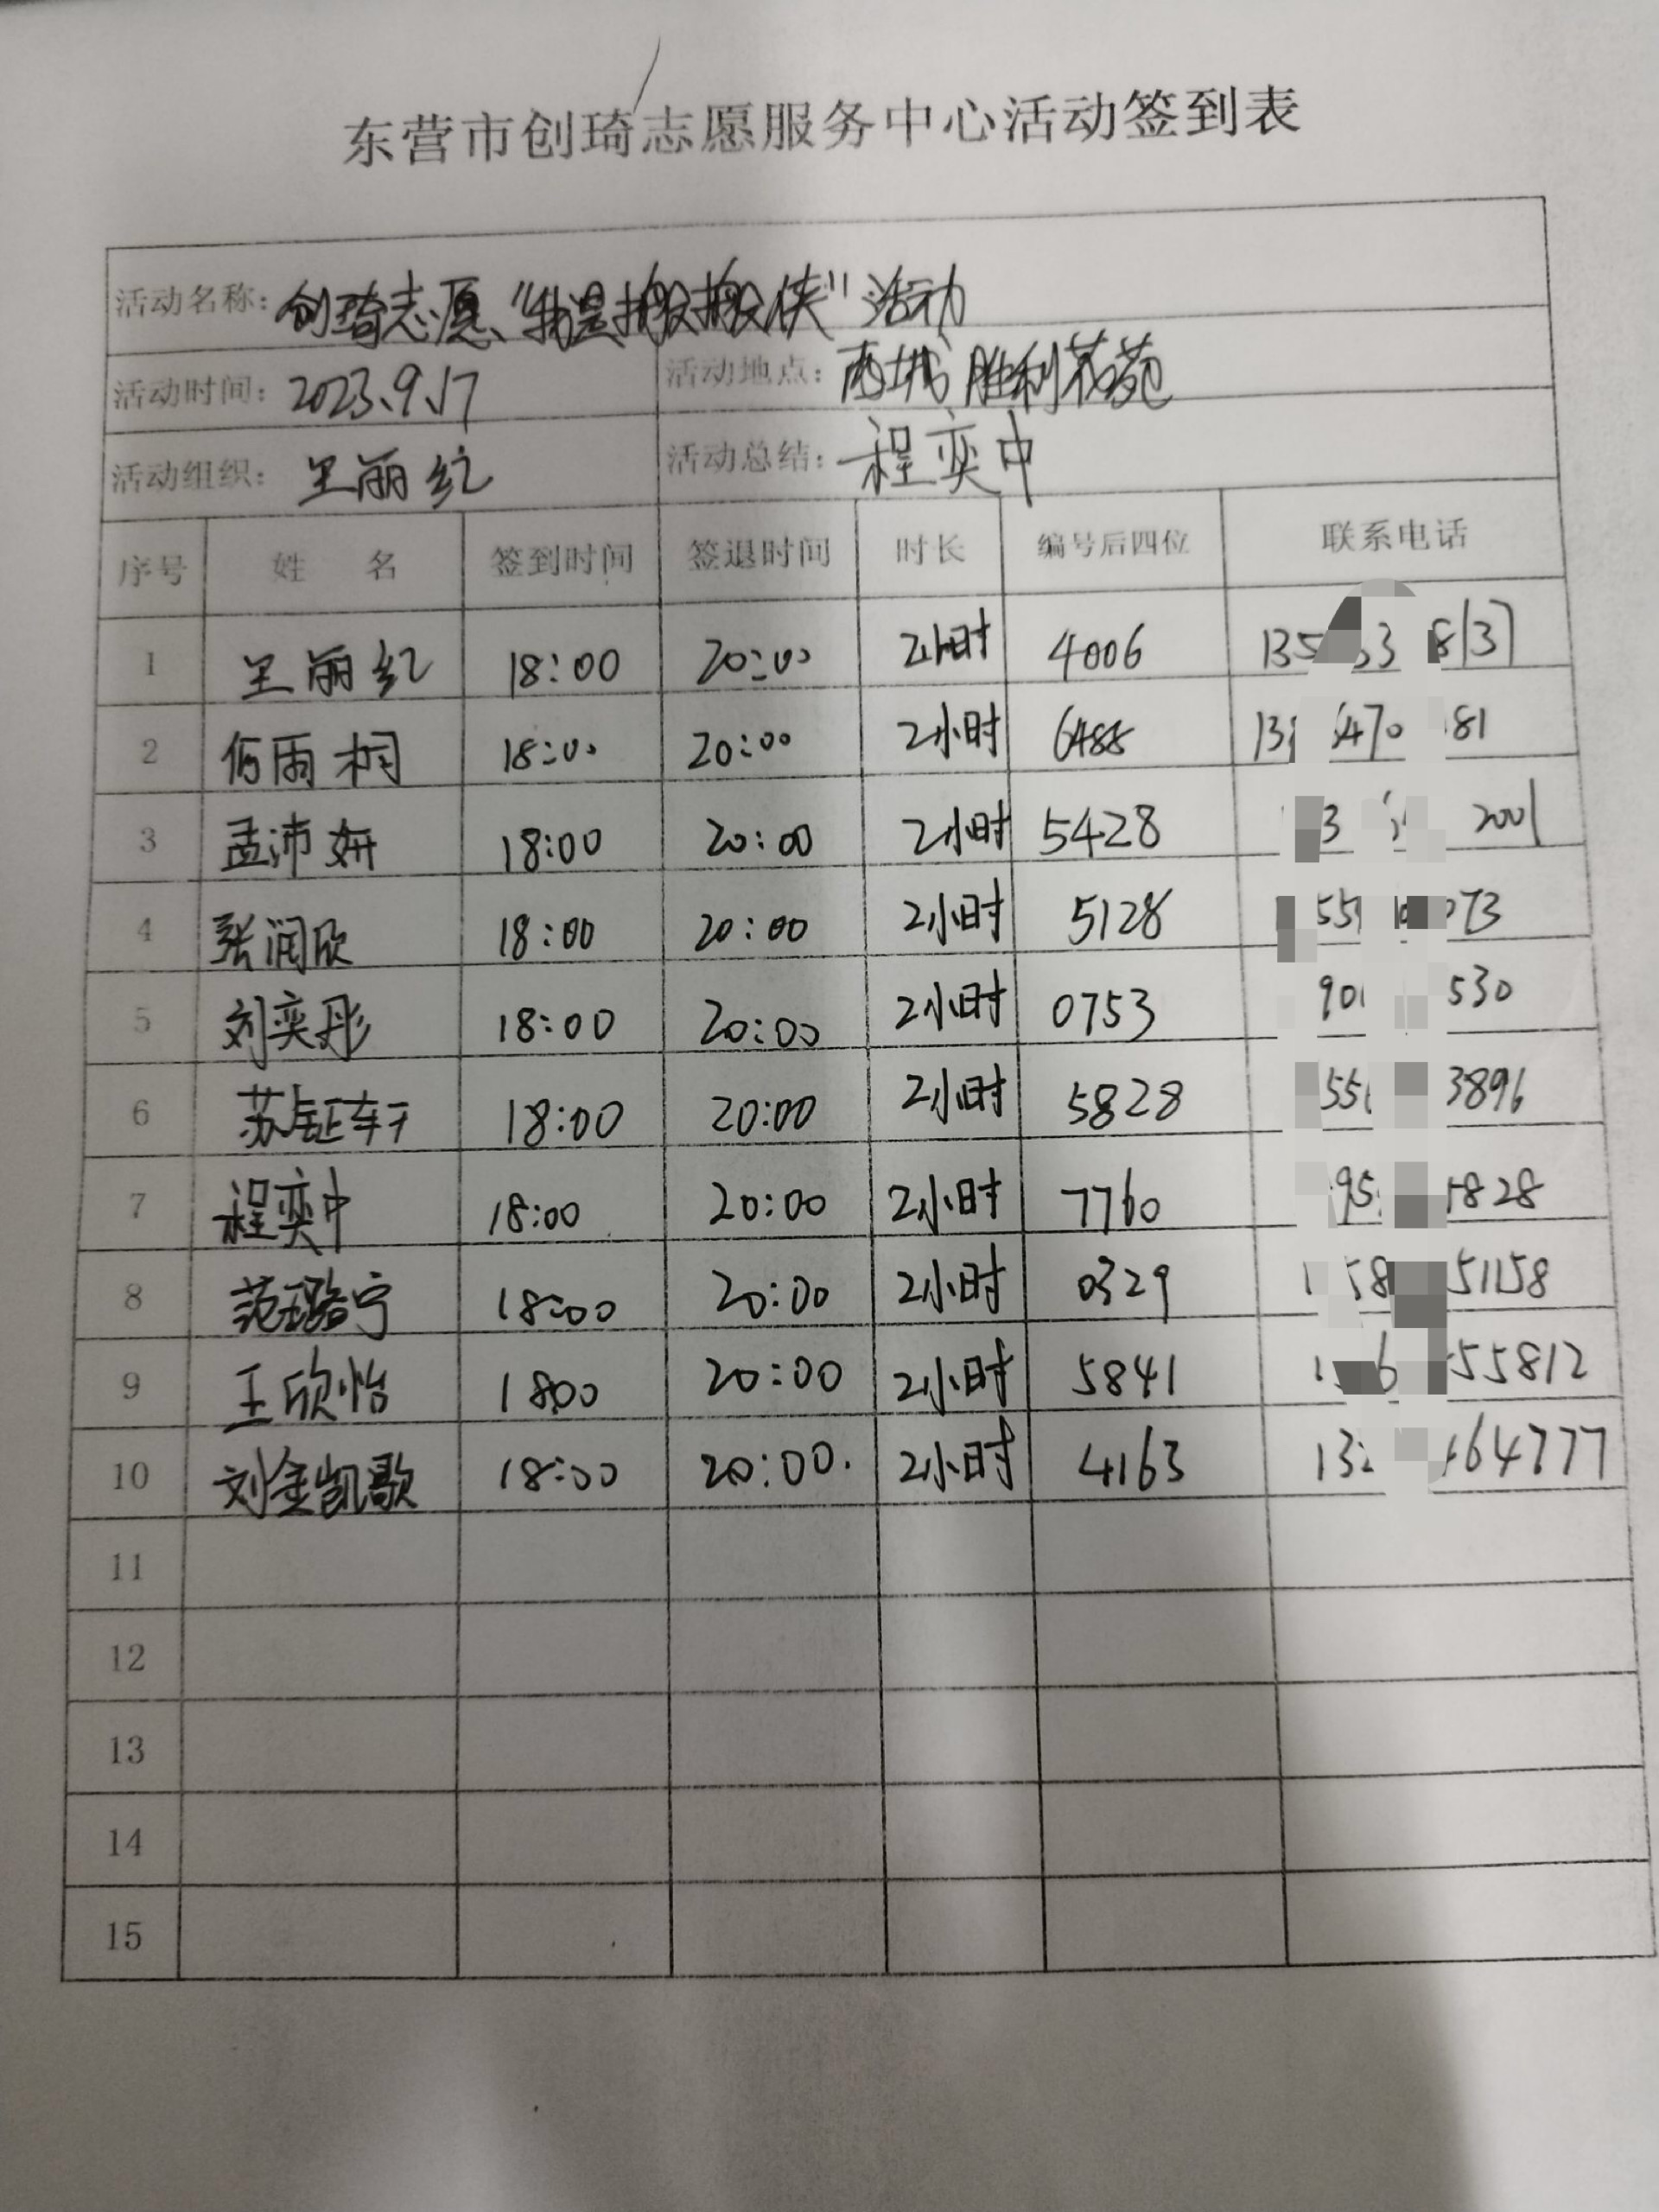 东营市创琦志愿服务中心活动签到表
活动名称：创琦志愿、"我是搬搬侠"活动
活动时间：2023.9.17 活动地点：西城胜利花苑
活动组织：王丽红 活动总结：程奕中
序号 姓 名 签到时间 签退时间 时长 编号后四位 联系电话
1 王丽红 18:00 20:00 2小时 4006
2 雨桐 18:00 20:00 2小时 6488
3 孟沛妍 18:00 20:00 2小时 5428 2001
4 张润欣 18:00 20:00 2小时 5128 073
5 刘奕彤 18:00 20:00 2小时 0753 530
6 苏钰轩 18:00 20:00 2小时 5828 3896
7 程奕中 18:00 20:00 2小时 7760 828
8 范璐宁 18:00 20:00 2小时 0329 51158
9 王欣怡 1800 20:00 2小时 5841 55812
10 刘金凯歌 18:00 20:00. 2小时 4163 64777
11
12
13
14
15